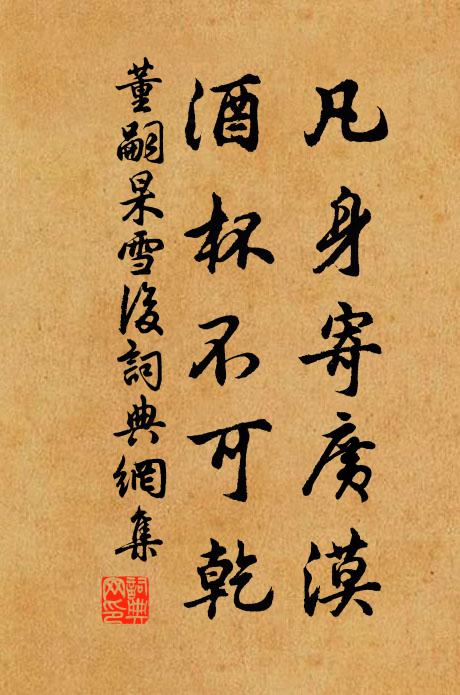 凡身寄廣漠
酒杯不可乾
董嗣杲雪後詞典網集
詞典
网印